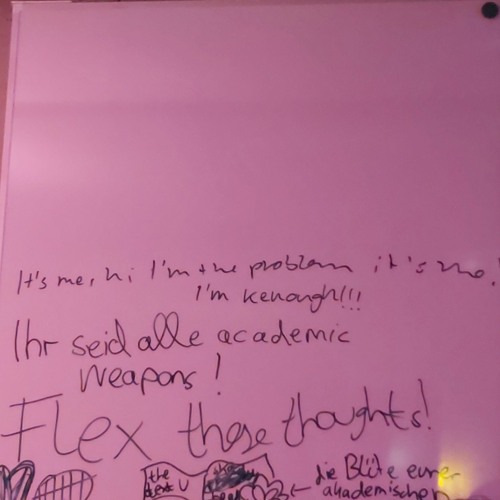 It's me, hi I'm the problem it's me!
I'm kenough!!!
Ihr seid alle academic
weapons!
Flex those thoughts!
the
die Blüte eurer
akademischen